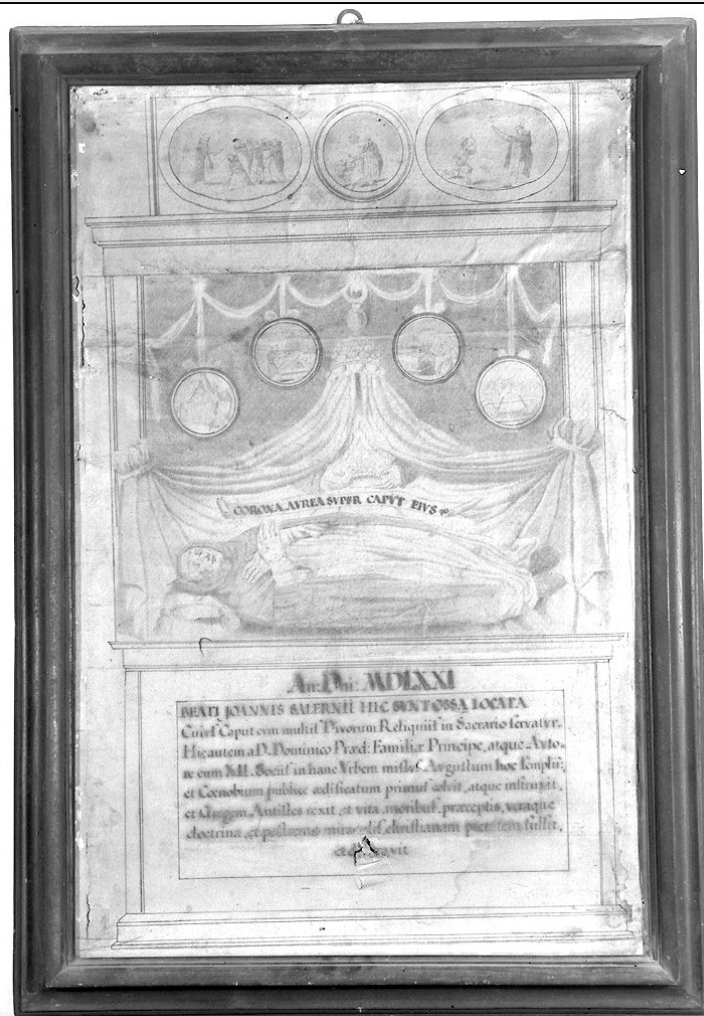 CORONA AVREA SVPER CAPVT EIVS
An: Dni: MDLXXI
BEATI JOANNIS SALERNII HIC SUNT OSSA LOCATA
Cuius Caput cum multis Divorum Reliquiis in Sacrario servatur.
Hic autem a D. Dominico Præd: Familiæ Principe, atque Avto-
re cum XII. Sociis in hanc Vrbem missus Augustum hoc Templū;
et Cœnobium publice ædificatum primus solvit, atque instruxit,
et Antistes rexit, et vita, moribus, præceptis, veraque
doctrina, et postremo christianam